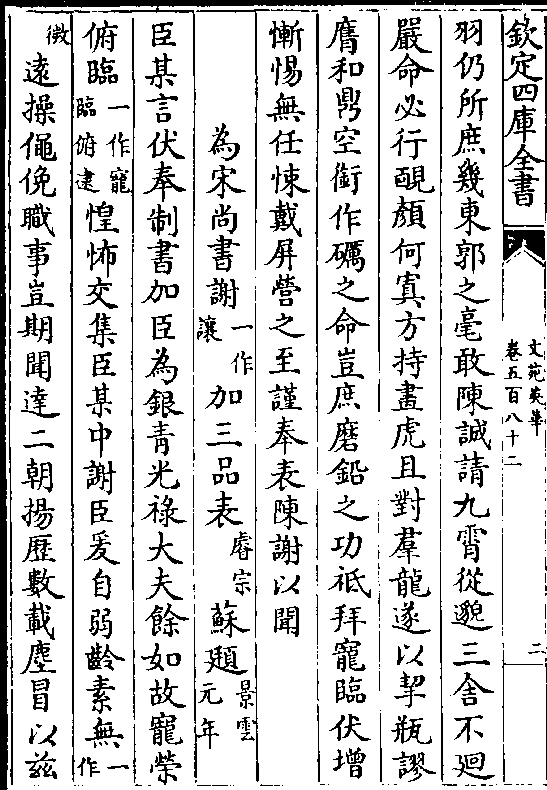 欽定四庫全書
文苑英華
卷五百八十二
二
羽仍所庶幾東郭之毫敢陳誠請九霄從邈三舍不廻
嚴命必行靦顔何寘方持畫虎且對羣龍遂以挈瓶謬
膺和鼎空銜作礪之命豈庶磨鉛之功祗拜寵臨伏增
慚惕無任悚戴屏營之至謹奉表陳謝以聞
為宋尚書謝一作讓加三品表睿宗蘇頲景雲元年
臣某言伏奉制書加臣為銀青光祿大夫餘如故寵榮
俯臨一作寵臨俯逮惶怖交集臣某中謝臣爰自弱齡素無一作
微逺操僶俛職事豈期聞達二朝揚歴數載塵冒以兹